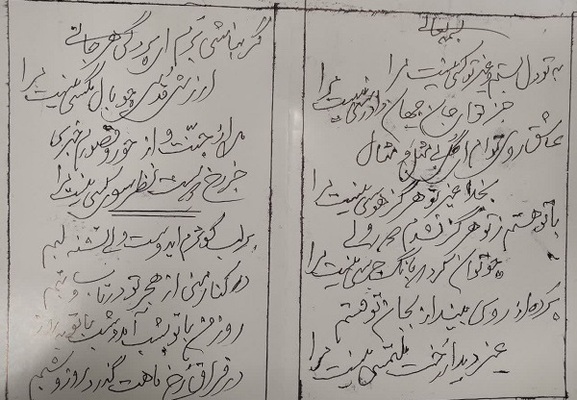 بسمه تعالی
به تو دل بستم و غیر تو کسی نیست مرا
جز تو ای جان جهان دادرسی نیست مرا
عاشق روی توام ای گل بی مثل و مثال
بخدا غیر تو هرگز هوسی نیست مرا
با تو هستم ز تو هرگز نشدم دور ولی
چه توان کرد که بانگ جرسی نیست مرا
پرده از روی بینداز بجان تو قسم
غیر دیدار رخت ملتمسی نیست مرا
گر نباشی برم ای پردگی هرجائی
ارزش قدس چو بال مگسی نیست مرا
مده از جنت و از حور و قصورم خبری
جز رخ دوست نظر سوی کسی نیست مرا
بر لب کوثرم ای دوست ولی تشنه لبم
در کنار منی از هجر تو در تاب و تبم
روز من با تو بشب آمد و شب با تو بروز
در فراق رخ ماهت گذرد روز و شبم